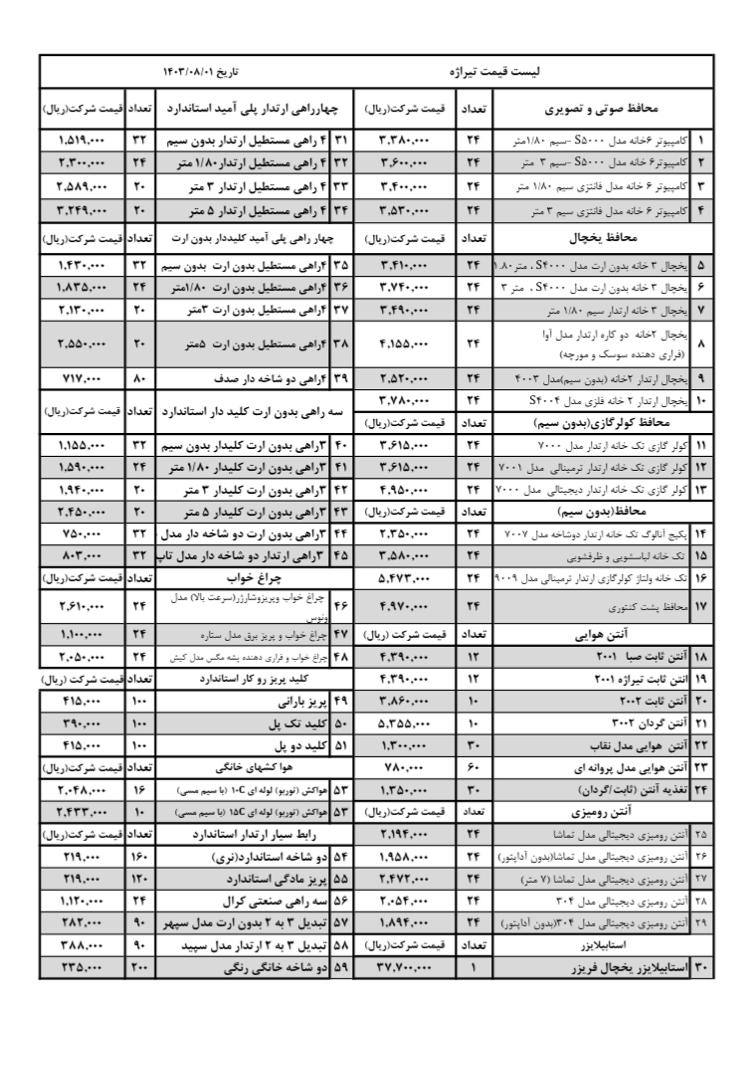 لیست قیمت تیراژه
تاریخ ۱۴۰۳/۰۸/۰۱
محافظ صوتی و تصویری تعداد قیمت شرکت(ریال)
۱ کامپیوتر ۶خانه مدل S۵۰۰۰ -سیم ۱/۸۰متر ۲۴ ۳,۳۸۰,۰۰۰
۲ کامپیوتر۶ خانه مدل S۵۰۰۰ -سیم ۳ متر ۲۴ ۳,۶۰۰,۰۰۰
۳ کامپیوتر ۶ خانه مدل فانتزی سیم ۱/۸۰ متر ۲۴ ۳,۴۰۰,۰۰۰
۴ کامپیوتر ۶ خانه مدل فانتزی سیم ۳ متر ۲۴ ۳,۵۳۰,۰۰۰
محافظ یخچال تعداد قیمت شرکت(ریال)
۵ یخچال ۳ خانه بدون ارت مدل S۴۰۰۰ ، متر ۱.۸۰ ۲۴ ۳,۴۱۰,۰۰۰
۶ یخچال ۳ خانه بدون ارت مدل S۴۰۰۰ ، متر ۳ ۲۴ ۳,۷۴۰,۰۰۰
۷ یخچال ۳ خانه ارتدار سیم ۱/۸۰ متر ۲۴ ۳,۴۹۰,۰۰۰
۸ یخچال ۲خانه دو کاره ارتدار مدل آوا
(فراری دهنده سوسک و مورچه) ۲۴ ۴,۱۵۵,۰۰۰
۹ یخچال ارتدار ۲خانه (بدون سیم)مدل ۴۰۰۳ ۲۴ ۲,۵۲۰,۰۰۰
۱۰ یخچال ارتدار ۲ خانه فلزی مدل S۴۰۰۴ ۲۴ ۳,۷۸۰,۰۰۰
محافظ کولرگازی(بدون سیم) تعداد قیمت شرکت(ریال)
۱۱ کولر گازی تک خانه ارتدار مدل ۷۰۰۰ ۲۴ ۳,۶۱۵,۰۰۰
۱۲ کولر گازی تک خانه ارتدار ترمینالی مدل ۷۰۰۱ ۲۴ ۳,۶۱۵,۰۰۰
۱۳ کولر گازی تک خانه ارتدار دیجیتالی مدل ۷۰۰۰ ۲۴ ۴,۹۵۰,۰۰۰
محافظ(بدون سیم) تعداد قیمت شرکت(ریال)
۱۴ پکیج آنالوگ تک خانه ارتدار دوشاخه مدل ۷۰۰۷ ۲۴ ۲,۳۵۰,۰۰۰
۱۵ تک خانه لباسشویی و ظرفشویی ۲۴ ۳,۵۸۰,۰۰۰
۱۶ تک خانه ولتاژ کولرگازی ارتدار ترمینالی مدل ۹۰۰۹ ۲۴ ۵,۴۷۳,۰۰۰
۱۷ محافظ پشت کنتوری ۲۴ ۴,۹۷۰,۰۰۰
آنتن هوایی تعداد قیمت شرکت (ریال)
۱۸ آنتن ثابت صبا ۲۰۰۱ ۱۲ ۴,۳۹۰,۰۰۰
۱۹ انتن ثابت تیراژه ۲۰۰۱ ۱۲ ۴,۳۹۰,۰۰۰
۲۰ آنتن ثابت ۲۰۰۲ ۱۰ ۳,۸۶۰,۰۰۰
۲۱ آنتن گردان ۳۰۰۲ ۱۰ ۵,۳۵۵,۰۰۰
۲۲ آنتن هوایی مدل نقاب ۳۰ ۱,۳۰۰,۰۰۰
۲۳ آنتن هوایی مدل پروانه ای ۶۰ ۷۸۰,۰۰۰
۲۴ تغذیه آنتن (ثابت/گردان) ۳۰ ۱,۳۵۰,۰۰۰
آنتن رومیزی تعداد قیمت شرکت(ریال)
۲۵ آنتن رومیزی دیجیتالی مدل تماشا ۲۴ ۲,۱۹۴,۰۰۰
۲۶ آنتن رومیزی دیجیتالی مدل تماشا(بدون آداپتور) ۲۴ ۱,۹۵۸,۰۰۰
۲۷ آنتن رومیزی دیجیتالی مدل تماشا (۷ متر) ۲۴ ۲,۴۷۲,۰۰۰
۲۸ آنتن رومیزی دیجیتالی مدل ۳۰۴ ۲۴ ۲,۰۵۴,۰۰۰
۲۹ آنتن رومیزی دیجیتالی مدل ۳۰۴(بدون آداپتور) ۲۴ ۱,۸۹۴,۰۰۰
استابیلایزر تعداد قیمت شرکت(ریال)
۳۰ استابیلایزر یخچال فریزر ۱ ۳۷,۷۰۰,۰۰۰
چهارراهی ارتدار پلی آمید استاندارد تعداد قیمت شرکت(ریال)
۳۱ ۴ راهی مستطیل ارتدار بدون سیم ۳۲ ۱,۵۱۹,۰۰۰
۳۲ ۴ راهی مستطیل ارتدار۱/۸۰ متر ۲۴ ۲,۳۰۰,۰۰۰
۳۳ ۴ راهی مستطیل ارتدار ۳ متر ۲۰ ۲,۵۸۹,۰۰۰
۳۴ ۴ راهی مستطیل ارتدار ۵ متر ۲۰ ۳,۲۴۹,۰۰۰
چهار راهی پلی آمید کلیددار بدون ارت تعداد قیمت شرکت(ریال)
۳۵ ۴راهی مستطیل بدون ارت بدون سیم ۳۲ ۱,۴۳۰,۰۰۰
۳۶ ۴راهی مستطیل بدون ارت ۱/۸۰متر ۲۴ ۱,۸۳۵,۰۰۰
۳۷ ۴راهی مستطیل بدون ارت ۳متر ۲۰ ۲,۱۳۰,۰۰۰
۳۸ ۴راهی مستطیل بدون ارت ۵متر ۲۰ ۲,۵۵۰,۰۰۰
۳۹ ۴راهی دو شاخه دار صدف ۸۰ ۷۱۷,۰۰۰
سه راهی بدون ارت کلید دار استاندارد تعداد قیمت شرکت(ریال)
۴۰ ۳راهی بدون ارت کلیدار بدون سیم ۳۲ ۱,۱۵۵,۰۰۰
۴۱ ۳راهی بدون ارت کلیدار ۱/۸۰ متر ۲۴ ۱,۵۹۰,۰۰۰
۴۲ ۳راهی بدون ارت کلیدار ۳ متر ۲۰ ۱,۹۴۰,۰۰۰
۴۳ ۳راهی بدون ارت کلیدار ۵ متر ۲۰ ۲,۴۵۰,۰۰۰
۴۴ ۳راهی بدون ارت دو شاخه دار مدل ۳۲ ۷۵۰,۰۰۰
۴۵ ۳راهی ارتدار دو شاخه دار مدل تاپ ۳۲ ۸۰۳,۰۰۰
چراغ خواب تعداد قیمت شرکت(ریال)
۴۶ چراغ خواب وپریزوشارژر(سرعت بالا) مدل
ونوس ۲۴ ۲,۶۱۰,۰۰۰
۴۷ چراغ خواب و پریز برق مدل ستاره ۲۴ ۱,۱۰۰,۰۰۰
۴۸ چراغ خواب و فراری دهنده پشه مگس مدل کیش ۲۴ ۲,۰۵۰,۰۰۰
کلید پریز رو کار استاندارد تعداد قیمت شرکت (ریال)
۴۹ پریز بارانی ۱۰۰ ۴۱۵,۰۰۰
۵۰ کلید تک پل ۱۰۰ ۳۹۰,۰۰۰
۵۱ کلید دو پل ۱۰۰ ۴۱۵,۰۰۰
هوا کشهای خانگی تعداد قیمت شرکت(ریال)
۵۳ هواکش (توربو) لوله ای ۱۰C (با سیم مسی) ۱۶ ۲,۰۴۸,۰۰۰
۵۳ هواکش (توربو) لوله ای ۱۵C (با سیم مسی) ۱۰ ۲,۴۳۳,۰۰۰
رابط سیار ارتدار استاندارد تعداد قیمت شرکت(ریال)
۵۴ دو شاخه استاندارد(نری) ۱۶۰ ۲۱۹,۰۰۰
۵۵ پریز مادگی استاندارد ۱۲۰ ۲۱۹,۰۰۰
۵۶ سه راهی صنعتی کرال ۲۴ ۱,۱۲۰,۰۰۰
۵۷ تبدیل ۳ به ۲ بدون ارت مدل سپهر ۹۰ ۲۸۲,۰۰۰
۵۸ تبدیل ۳ به ۲ ارتدار مدل سپید ۹۰ ۳۸۸,۰۰۰
۵۹ دو شاخه خانگی رنگی ۲۰۰ ۲۳۵,۰۰۰